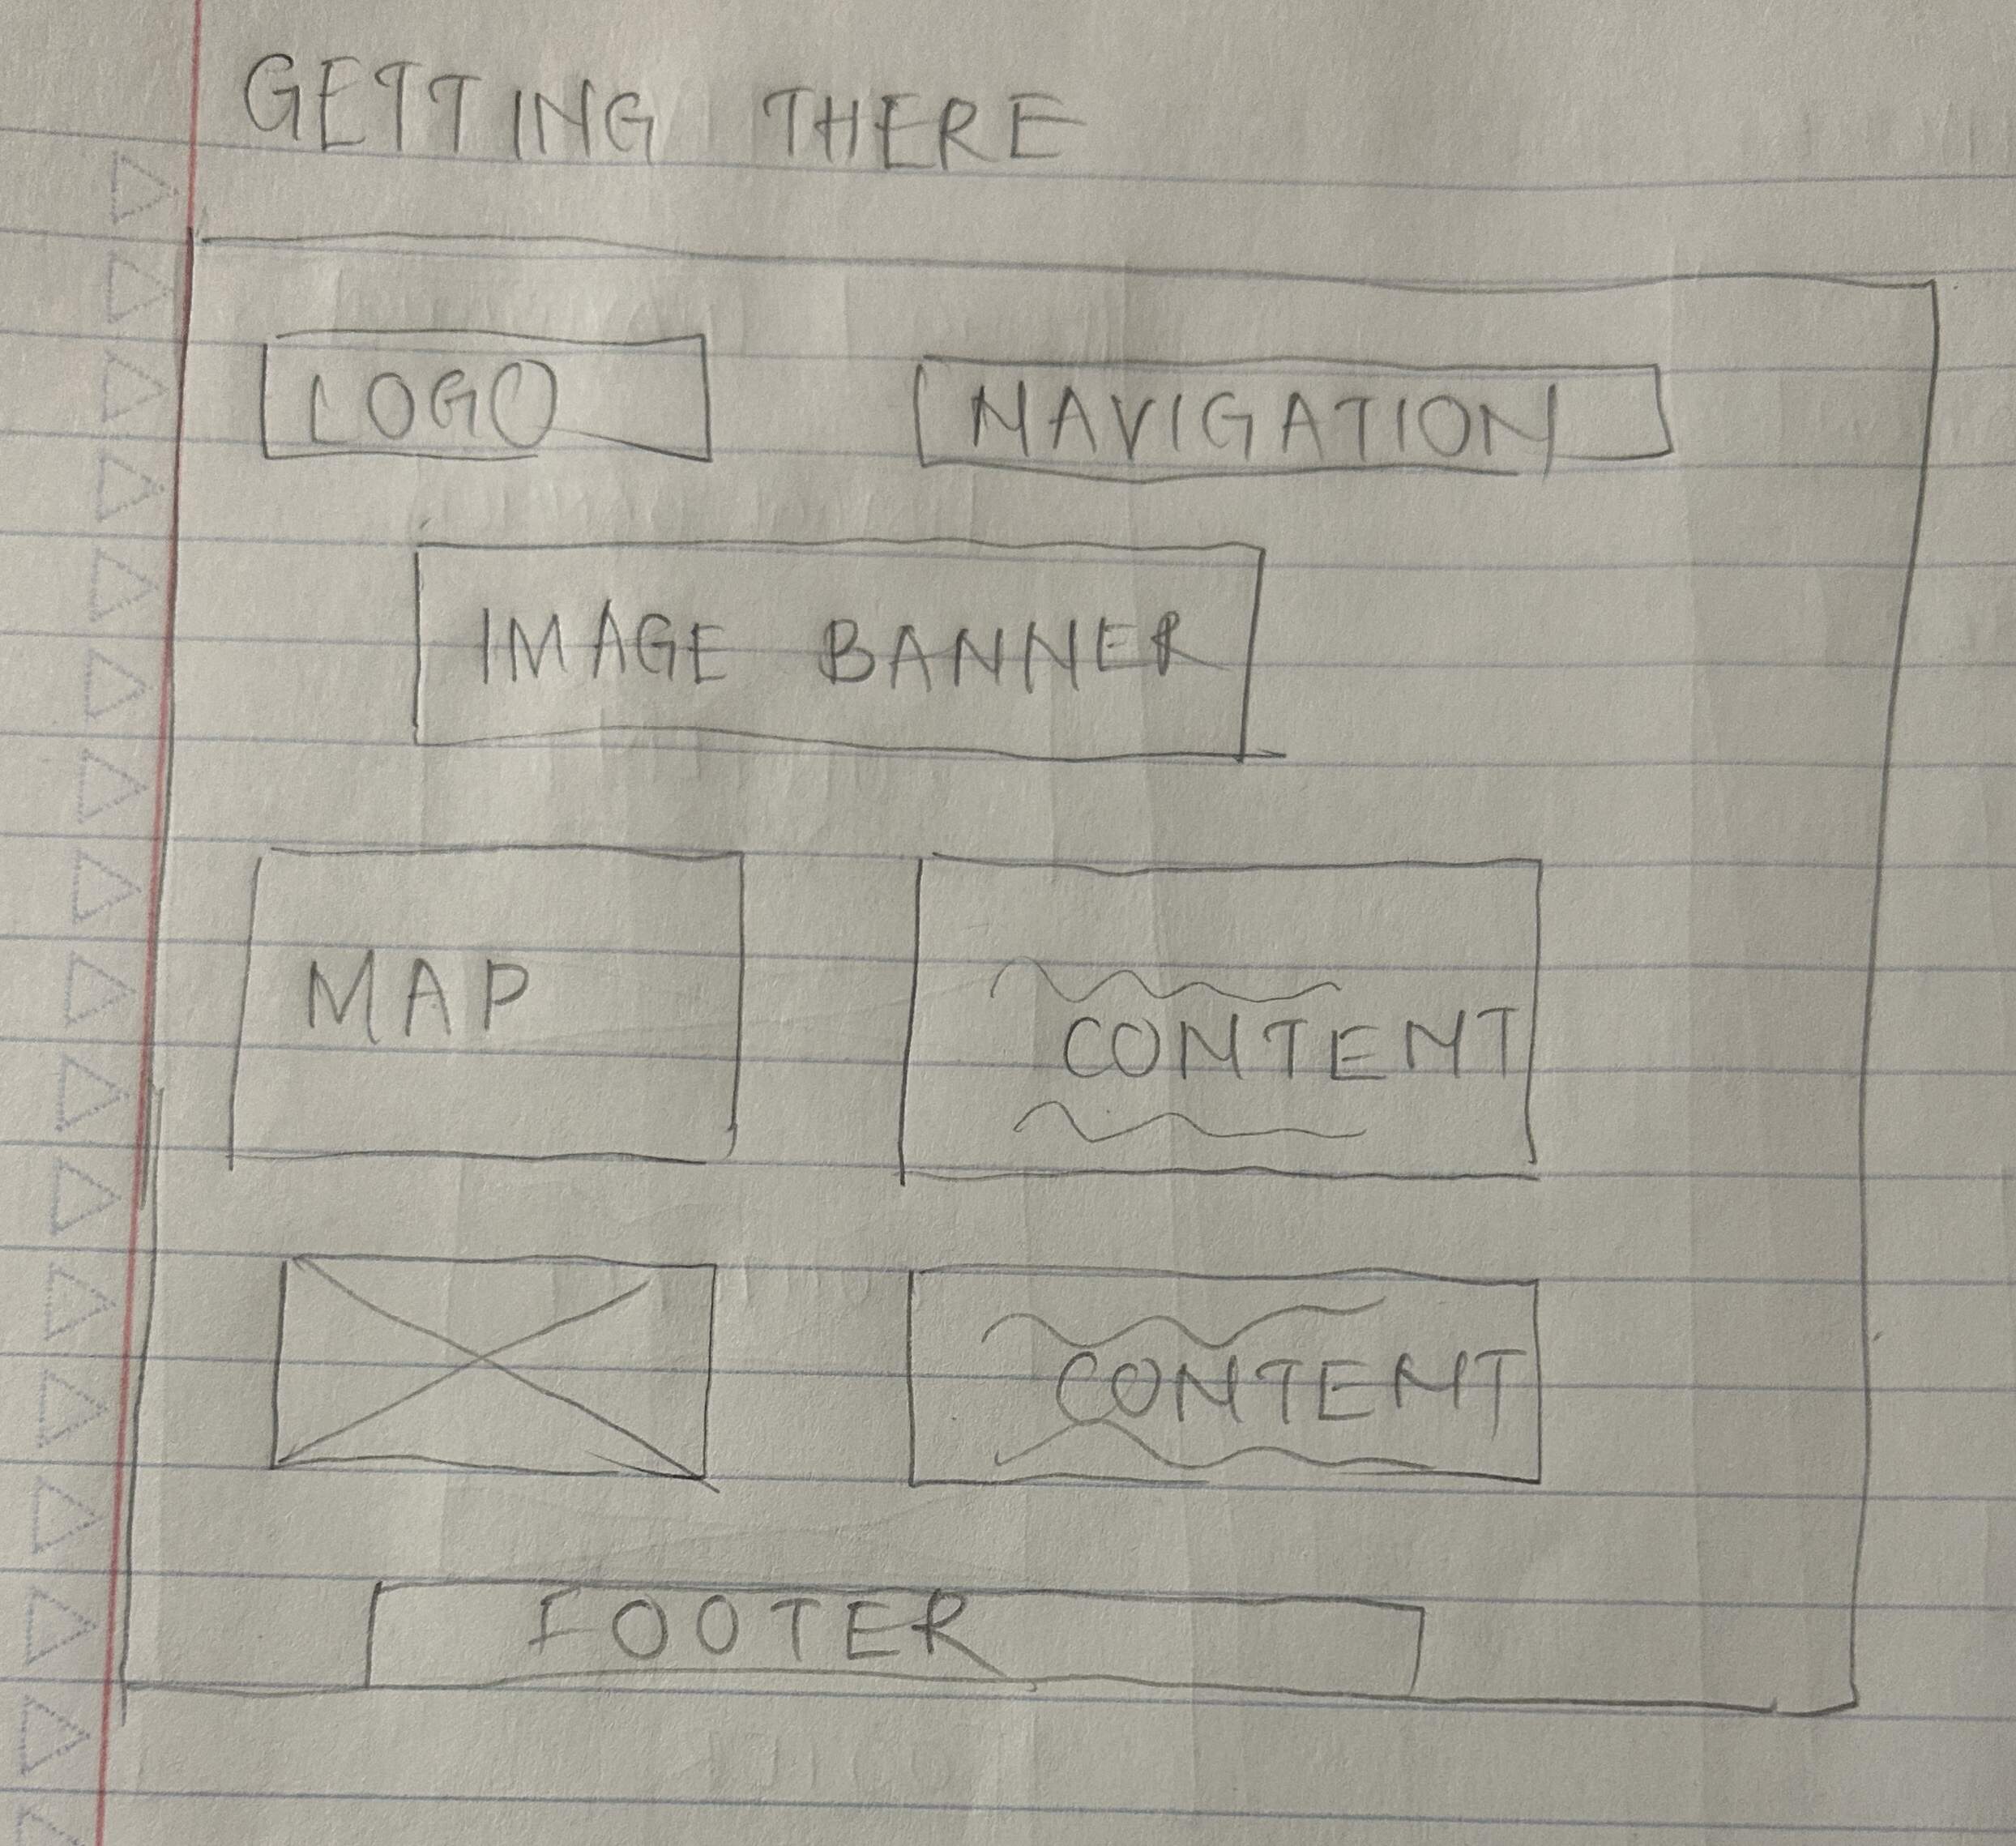 GETTING THERE
LOGO NAVIGATION
IMAGE BANNER
MAP CONTENT
CONTENT
FOOTER